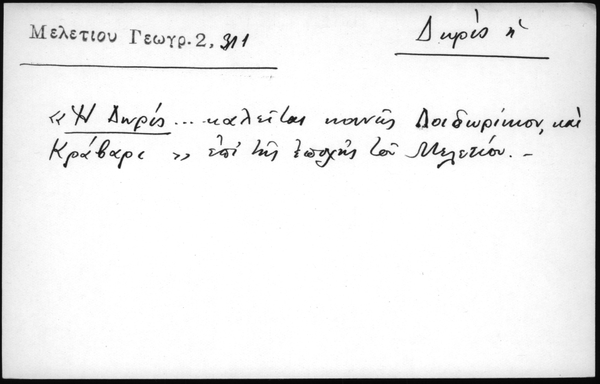 Μελετιου Γεωγρ. 2, 311
Δωρὶς ἡ
«Ἡ Δωρὶς ... καλεῖται κοινῶς Λοιδωρίκιον, καὶ
Κράβαρι » ἐπὶ τῆς ἐποχῆς τοῦ Μελετίου. –